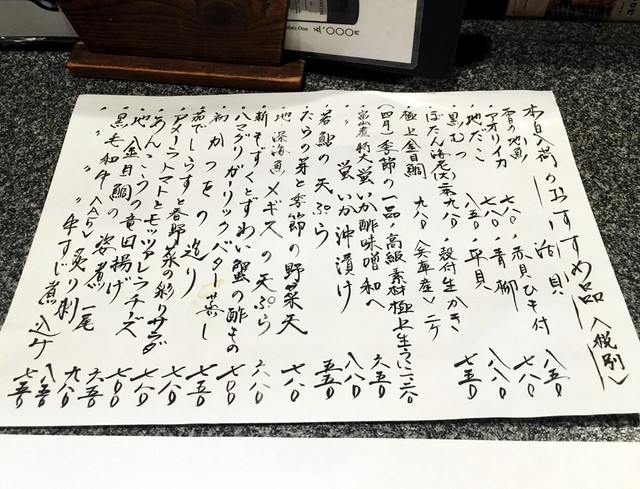 五、〇〇〇円
本日入荷のおすすめ品〈税別〉
・活貝
・赤貝ひも付 八五〇
・青柳 七八〇
・平貝 八八〇
・殻付生かき〈兵庫産〉二ケ 七五〇
・アオリイカ 七八〇
・地だこ 八五〇
・黒むつ 九八〇
・ぼたん海老
・極上金目鯛 九八〇
(四月)季節の一品・高級素材極上生うに 一二八〇
・富山産特大蛍いか酢味噌和へ 六五〇
〃 蛍いか沖漬け 八八〇
・若鮎の天ぷら 五五〇
・たらの芽と季節の野菜天 七八〇
・地深海魚メギスの天ぷら 六八〇
・新もずくとずわい蟹の酢もの 七〇〇
・ハマグリガーリックバター蒸し
・初かつをの造り
・赤でしらすと春野菜の彩りサラダ
・アメーラトマトとモッツァレラチーズ 七〇〇
・あんこうの竜田揚げ 七〇〇
・地金目鯛の姿煮 一尾
・黒毛和牛〈A5〉炙り刺
〃 牛すじ煮込ケ 七五〇